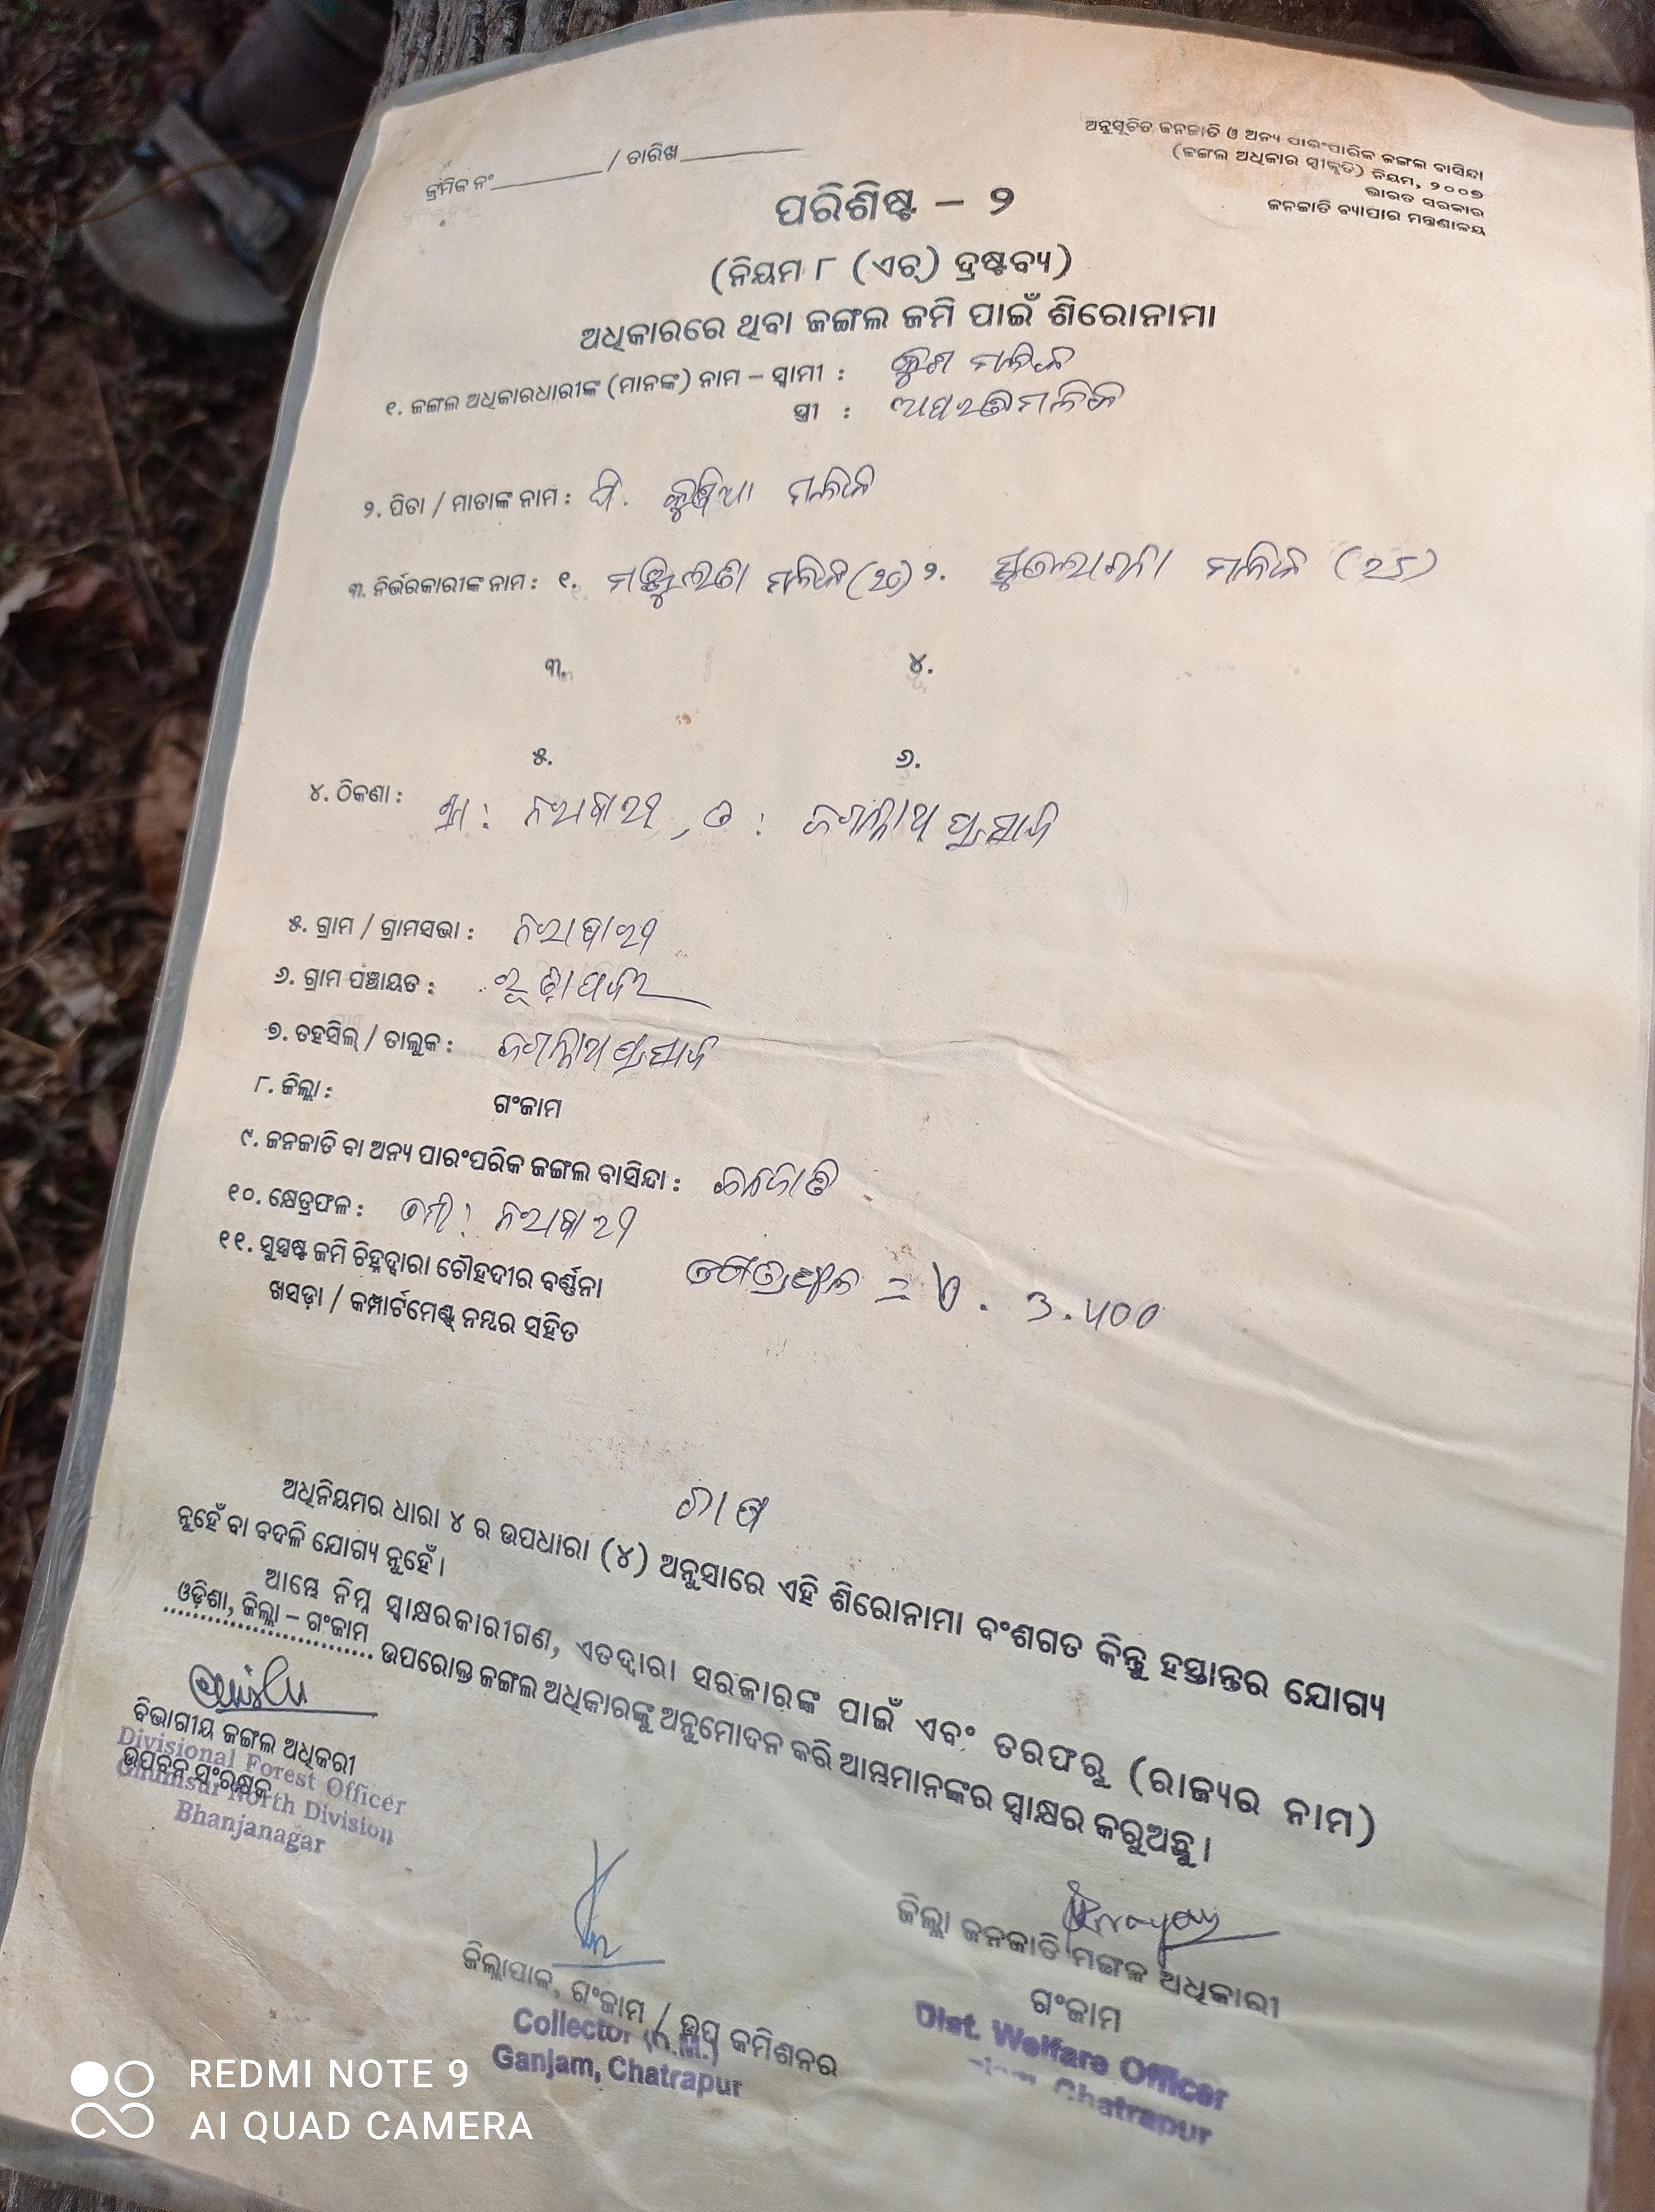 କ୍ରମିକ ନଂ__________ / ତାରିଖ__________
ଅନୁସୂଚିତ ଜନଜାତି ଓ ଅନ୍ୟ ପାରଂପାରିକ ଜଙ୍ଗଲ ବାସିନ୍ଦା
(ଜଙ୍ଗଲ ଅଧିକାର ସ୍ୱୀକୃତି) ନିୟମ, ୨୦୦୭
ଭାରତ ସରକାର
ଜନଜାତି ବ୍ୟାପାର ମନ୍ତ୍ରଣାଳୟ
ପରିଶିଷ୍ଟ – ୨
(ନିୟମ ୮ (ଏଚ୍) ଦ୍ରଷ୍ଟବ୍ୟ)
ଅଧିକାରରେ ଥିବା ଜଙ୍ଗଲ ଜମି ପାଇଁ ଶିରୋନାମା
୧. ଜଙ୍ଗଲ ଅଧିକାରଧାରୀଙ୍କ (ମାନଙ୍କ) ନାମ – ସ୍ୱାମୀ : କୁଶ ମଲିକ
ସ୍ତ୍ରୀ : ମଲିକ
୨. ପିତା / ମାତାଙ୍କ ନାମ : ପି. ମଲିକ
୩. ନିର୍ଭରକାରୀଙ୍କ ନାମ : ୧. ମଲିକ ୨. ମଲିକ (୨୫)
୩. ୪.
୫. ୬.
୪. ଠିକଣା : ଗ୍ରା : ତ : ଜଗନ୍ନାଥ ପ୍ରସାଦ
୫. ଗ୍ରାମ / ଗ୍ରାମସଭା :
୬. ଗ୍ରାମ ପଞ୍ଚାୟତ :
୭. ତହସିଲ୍ / ତାଲୁକ : ଜଗନ୍ନାଥପ୍ରସାଦ
୮. ଜିଲ୍ଲା : ଗଂଜାମ
୯. ଜନଜାତି ବା ଅନ୍ୟ ପାରଂପରିକ ଜଙ୍ଗଲ ବାସିନ୍ଦା : ଜନଜାତି
୧୦. କ୍ଷେତ୍ରଫଳ :
୧୧. ସୁସ୍ପଷ୍ଟ ଜମି ଚିହ୍ନଦ୍ୱାରା ଚୌହଦୀର ବର୍ଣ୍ଣନା କ୍ଷେତ୍ରଫଳ = ଏ. ୩.୪୦୦
ଖସଡ଼ା / କମ୍ପାର୍ଟମେଣ୍ଟ ନମ୍ବର ସହିତ
ଅଧିନିୟମର ଧାରା ୪ ର ଉପଧାରା (୪) ଅନୁସାରେ ଏହି ଶିରୋନାମା ବଂଶଗତ କିନ୍ତୁ ହସ୍ତାନ୍ତର ଯୋଗ୍ୟ
ନୁହେଁ ବା ବଦଳି ଯୋଗ୍ୟ ନୁହେଁ ।
ଆମ୍ଭେ ନିମ୍ନ ସ୍ୱାକ୍ଷରକାରୀଗଣ, ଏତଦ୍ୱାରା ସରକାରଙ୍କ ପାଇଁ ଏବଂ ତରଫରୁ (ରାଜ୍ୟର ନାମ)
ଓଡ଼ିଶା, ଜିଲ୍ଲା – ଗଂଜାମ ଉପରୋକ୍ତ ଜଙ୍ଗଲ ଅଧିକାରଙ୍କୁ ଅନୁମୋଦନ କରି ଆମ୍ଭମାନଙ୍କର ସ୍ୱାକ୍ଷର କରୁଅଛୁ ।
ବିଭାଗୀୟ ଜଙ୍ଗଲ ଅଧିକରୀ
ଉପବନ ସଂରକ୍ଷକ
Divisional Forest Officer
Ghumsur North Division
Bhanjanagar
ଜିଲ୍ଲାପାଳ, ଗଂଜାମ / ଉପ କମିଶନର
Collector
Ganjam, Chatrapur
ଜିଲ୍ଲା ଜନଜାତି ମଙ୍ଗଳ ଅଧିକାରୀ
ଗଂଜାମ
Dist. Welfare Officer
Chatrapur
REDMI NOTE 9
AI QUAD CAMERA